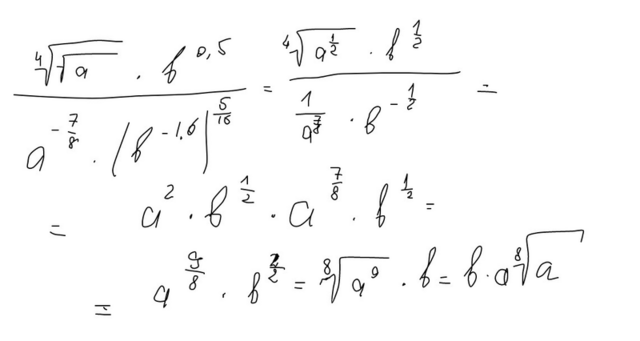 \frac{\sqrt[4]{\sqrt{a}} \cdot b^{0,5}}{a^{-\frac{7}{8}} \cdot (b^{-1,6})^{\frac{5}{16}}} = \frac{\sqrt[4]{a^{\frac{1}{2}}} \cdot b^{\frac{1}{2}}}{\frac{1}{a^{\frac{7}{8}}} \cdot b^{-\frac{1}{2}}} =
= a^{2} \cdot b^{\frac{1}{2}} \cdot a^{\frac{7}{8}} \cdot b^{\frac{1}{2}} =
= a^{\frac{9}{8}} \cdot b^{\frac{2}{2}} = \sqrt[8]{a^{9}} \cdot b = b \cdot a \sqrt[8]{a}